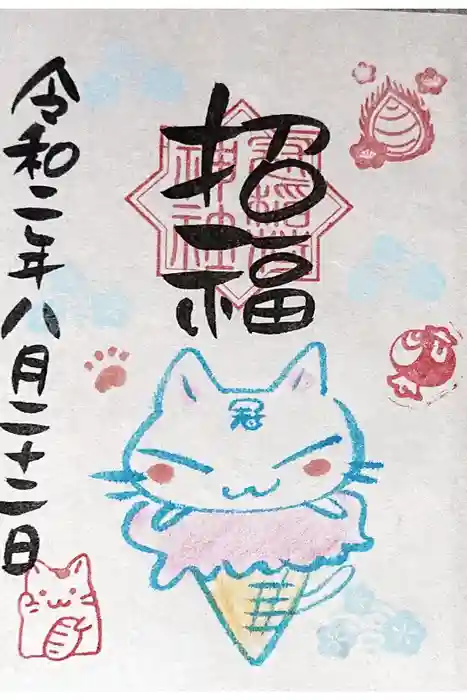 招福
神社
冠
令和二年八月二十二日